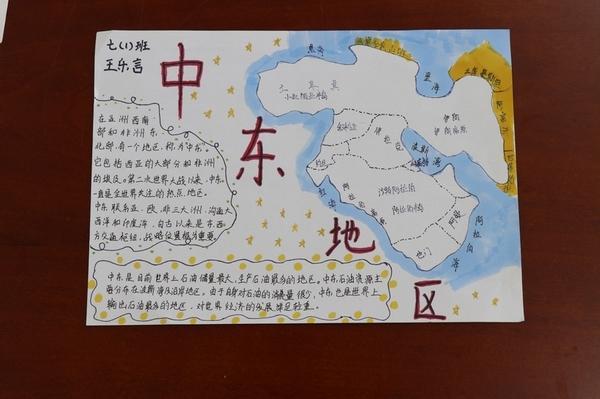 七(1)班
王乐言
中
东
地
区
在亚洲西南
部和非洲东
北部,有一个地区,称为"中东"。
它包括西亚的大部分和非洲
的埃及。第二次世界大战以来,中东
一直是全世界关注的热点地区。
中东联系亚、欧、非三大洲,沟通大
西洋和印度洋,自古以来是东西
方交通枢纽,战略位置极其重要。
中东是目前世界上石油储量最大,生产石油最多的地区。中东石油资源主
要分布在波斯湾及沿岸地区。由于自身对石油的消费量很少,中东也是世界上
输出石油最多的地区,对世界经济的发展举足轻重。
黑海
里海
土耳其
伊朗
伊朗高原
阿富汗
伊拉克
波斯湾
红海
沙特阿拉伯
阿拉伯半岛
阿曼
也门
阿拉伯海